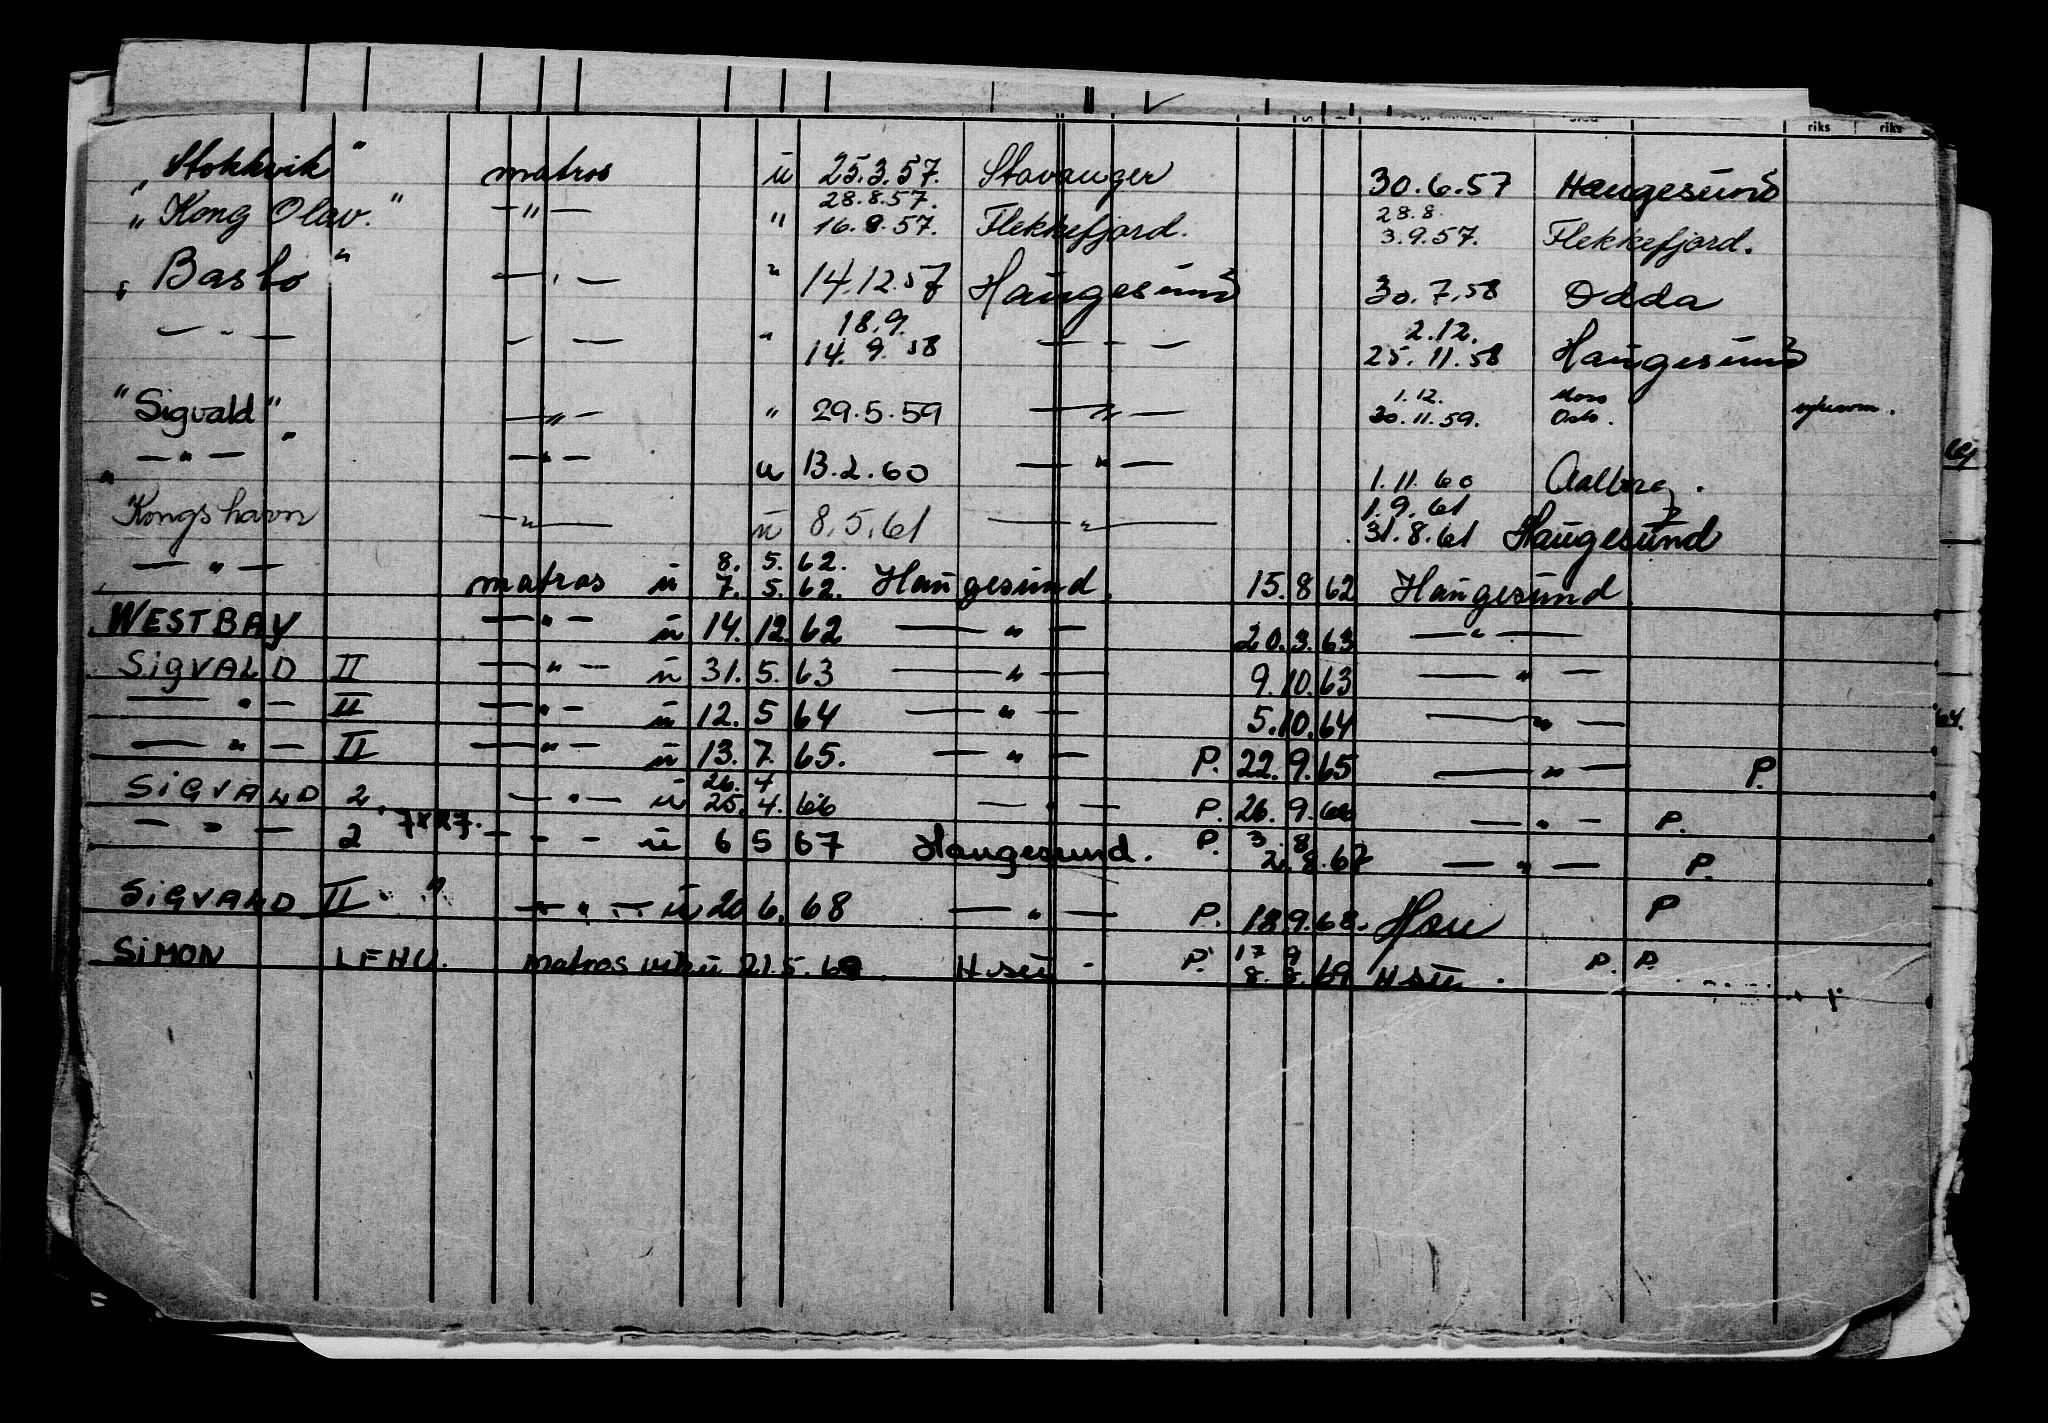 riks riks
"Stokkvik" matros u 25.3.57. Stavanger 30.6.57 Haugesund
28.8.57. 28.8.
"Kong Olav." —"— " 16.8.57. Flekkefjord. 3.9.57. Flekkefjord.
"Basto" —"— " 14.12.57 Haugesund 30.7.58 Odda
18.9. 2.12.
—"— —"— " 14.9.58 —"— 25.11.58 Haugesund
1.12. Moss
"Sigvald" —"— " 29.5.59 —"— 30.11.59. Oslo.
—"— —"— u 13.2.60 —"— 1.11.60 Aalborg.
1.9.61
Kongshavn —"— u 8.5.61 —"— 31.8.61 Haugesund
8. 5. 62.
—"— matros u 7. 5. 62. Haugesund 15. 8 62 Haugesund
WESTBAY —"— u 14. 12. 62 —"— 20. 3. 63 —"—
SIGVALD II —"— u 31. 5. 63 —"— 9. 10. 63 —"—
—"— II —"— u 12. 5 64 —"— 5. 10. 64 —"—
—"— II —"— u 13. 7. 65. —"— P. 22. 9. 65 —"— P.
26. 4
SIGVALD 2. —"— u 25. 4. 66 —"— P. 26. 9. 66 —"— P.
3. 8
—"— 2 —"— u 6 5 67 Haugesund. P. 2. 8. 67 —"— P.
SIGVALD II —"— u 20 6. 68 —"— P. 18. 9. 68. Hsu P
17 9
SIMON LEHU. matros u 21. 5. 69 Hsu P. 8. 8. 69 Hsu. P. P.
64.